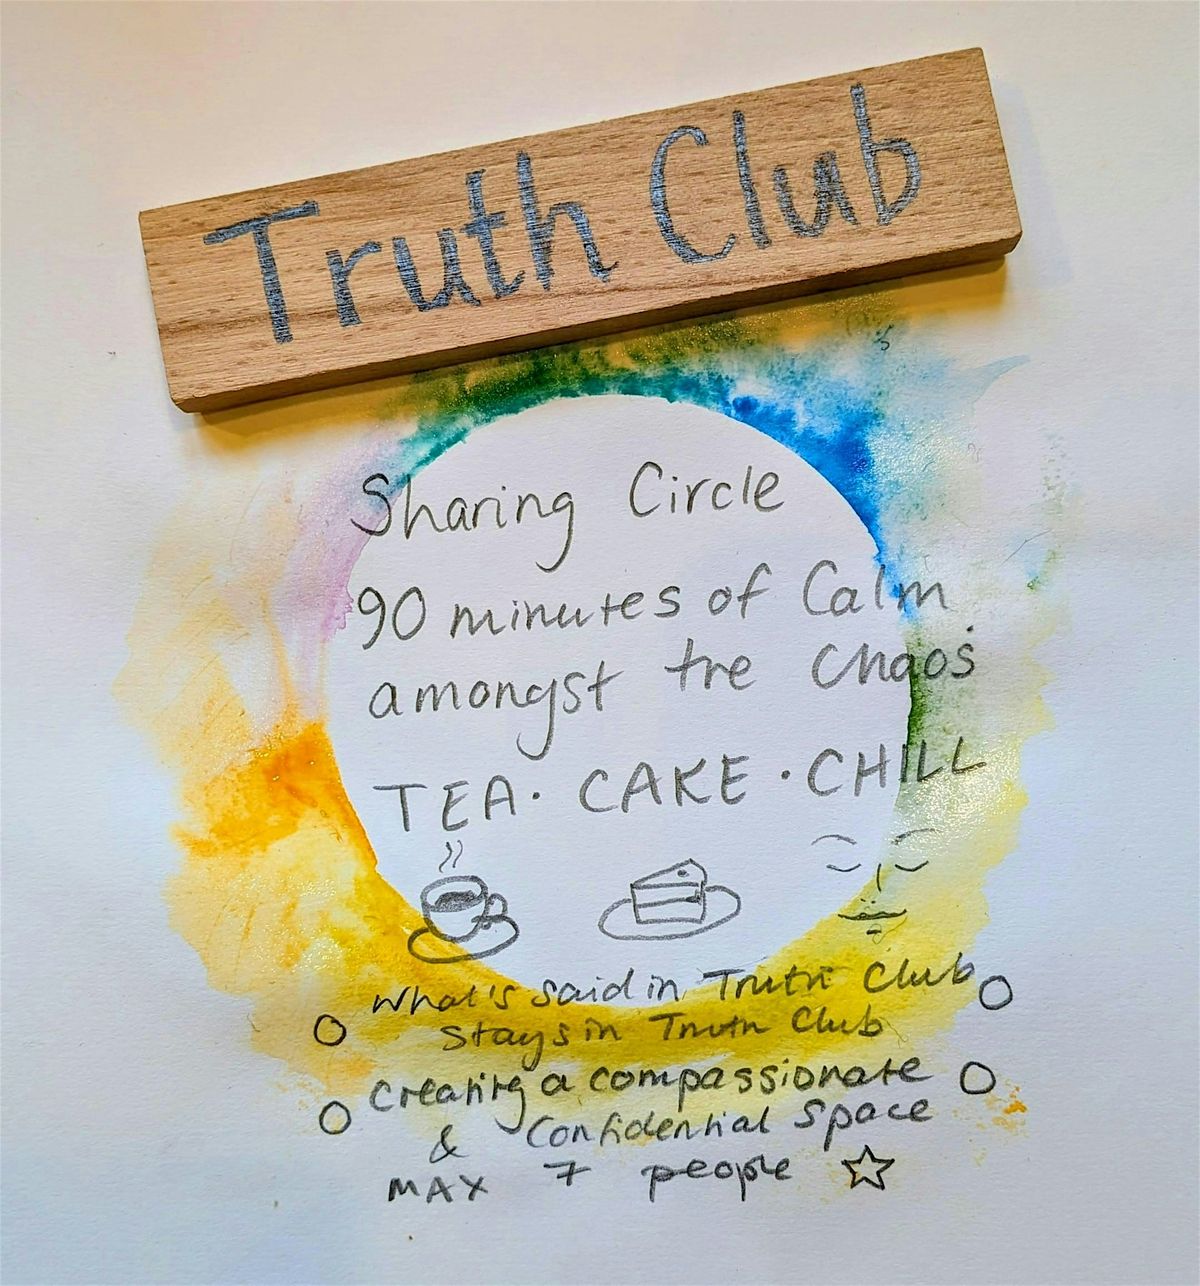 Truth Club
Sharing Circle
90 minutes of Calm
amongst the Chaos
TEA · CAKE · CHILL
What's said in Truth Club
Stays in Truth Club
Creating a compassionate
& Confidential Space
MAX 7 people